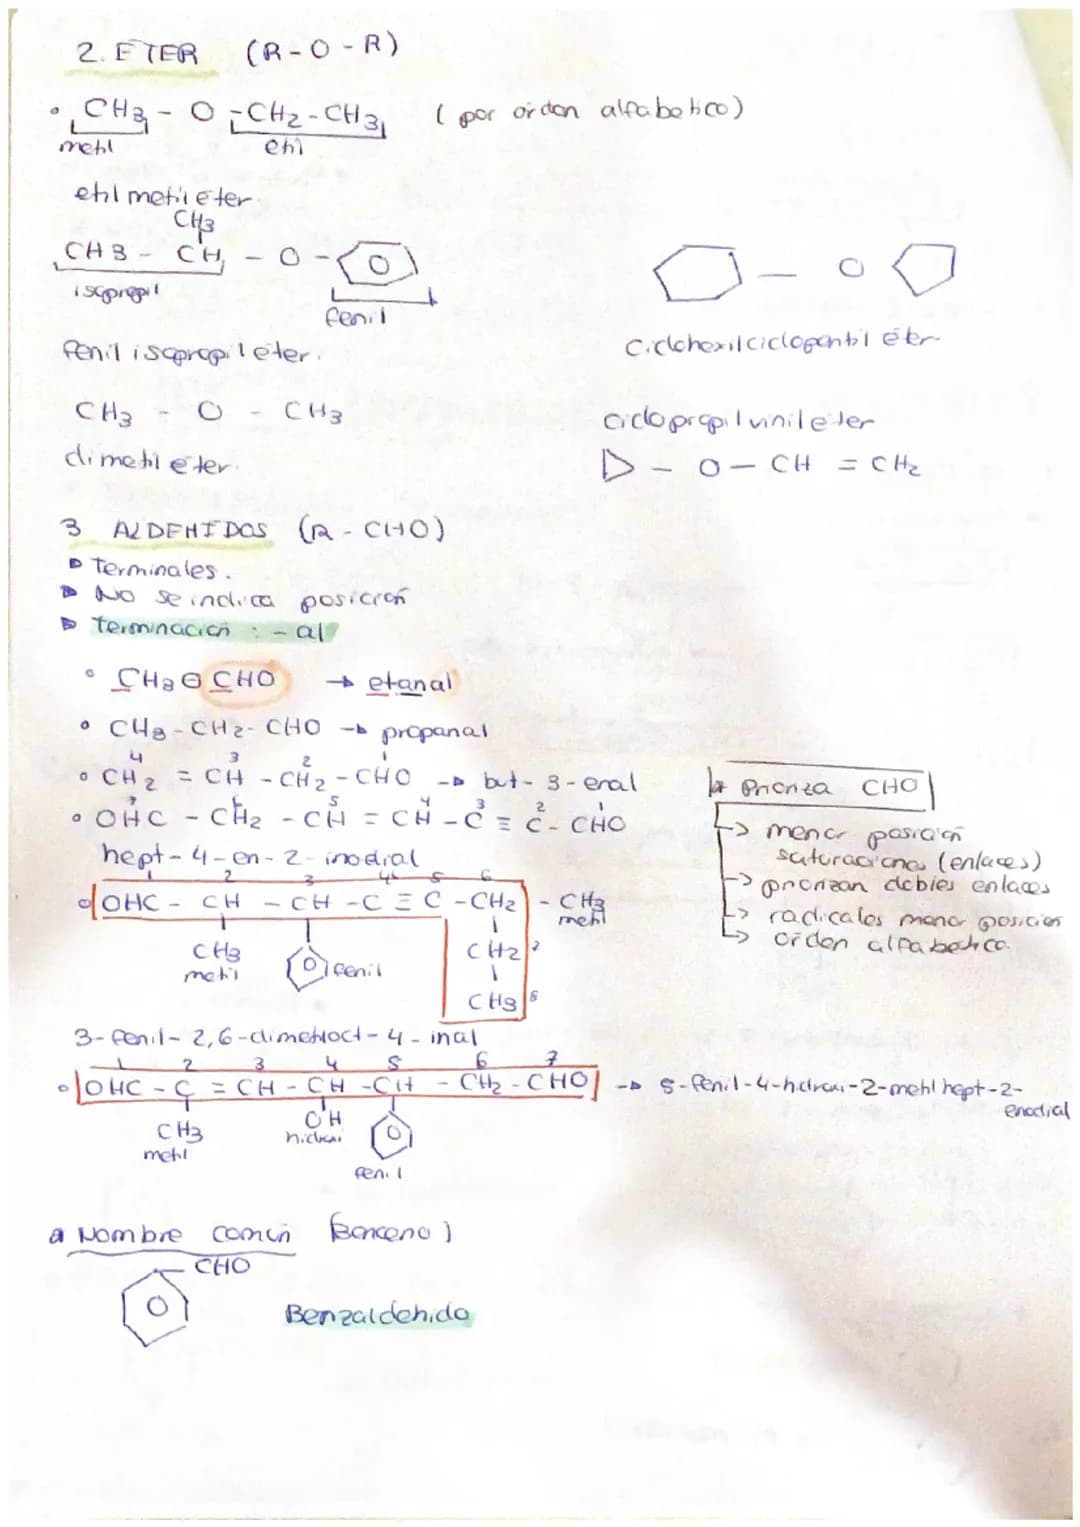 2. ETER (R-O-R)
• CH3 - O - CH2 - CH3 (por orden alfabetico)
metil etil
etil metil eter
CH3
CH3 - CH - O -
isopropil
fenil
fenil isopropil eter.
- O
Ciclohexilciclopentil éter
CH3 - O - CH3
dimetil eter.
ciclopropil vinil eter
- O - CH = CH2
3 ALDEHIDOS (R - CHO)
▷ Terminales.
▷ No se indica posición
▷ terminación : - al
• CH3 - CHO → etanal
• CH3 - CH2 - CHO → propanal
4 3 2 1
• CH2 = CH - CH2 - CHO → but-3-enal
7 6 5 4 3 2 1
• OHC - CH2 - CH = CH - C ≡ C - CHO
hept-4-en-2-inodial
Prioriza CHO
↳ menor posición
saturaciones (enlaces)
↳ priorizan dobles enlaces
↳ radicales menor posición
↳ orden alfabetico.
1 2 3 4 5 6
• OHC - CH - CH - C ≡ C - CH2 - CH3
metil
CH3
metil
fenil
CH2 7
CH3 8
3-fenil-2,6-dimetiloct-4-inal
1 2 3 4 5 6 7
• OHC - C = CH - CH - CH - CH2 - CHO → 5-fenil-4-hidroxi-2-metil hept-2-
enodial
CH3
metil
OH
hidroxi
fenil
Nombre común (Benceno)
CHO
Benzaldehido